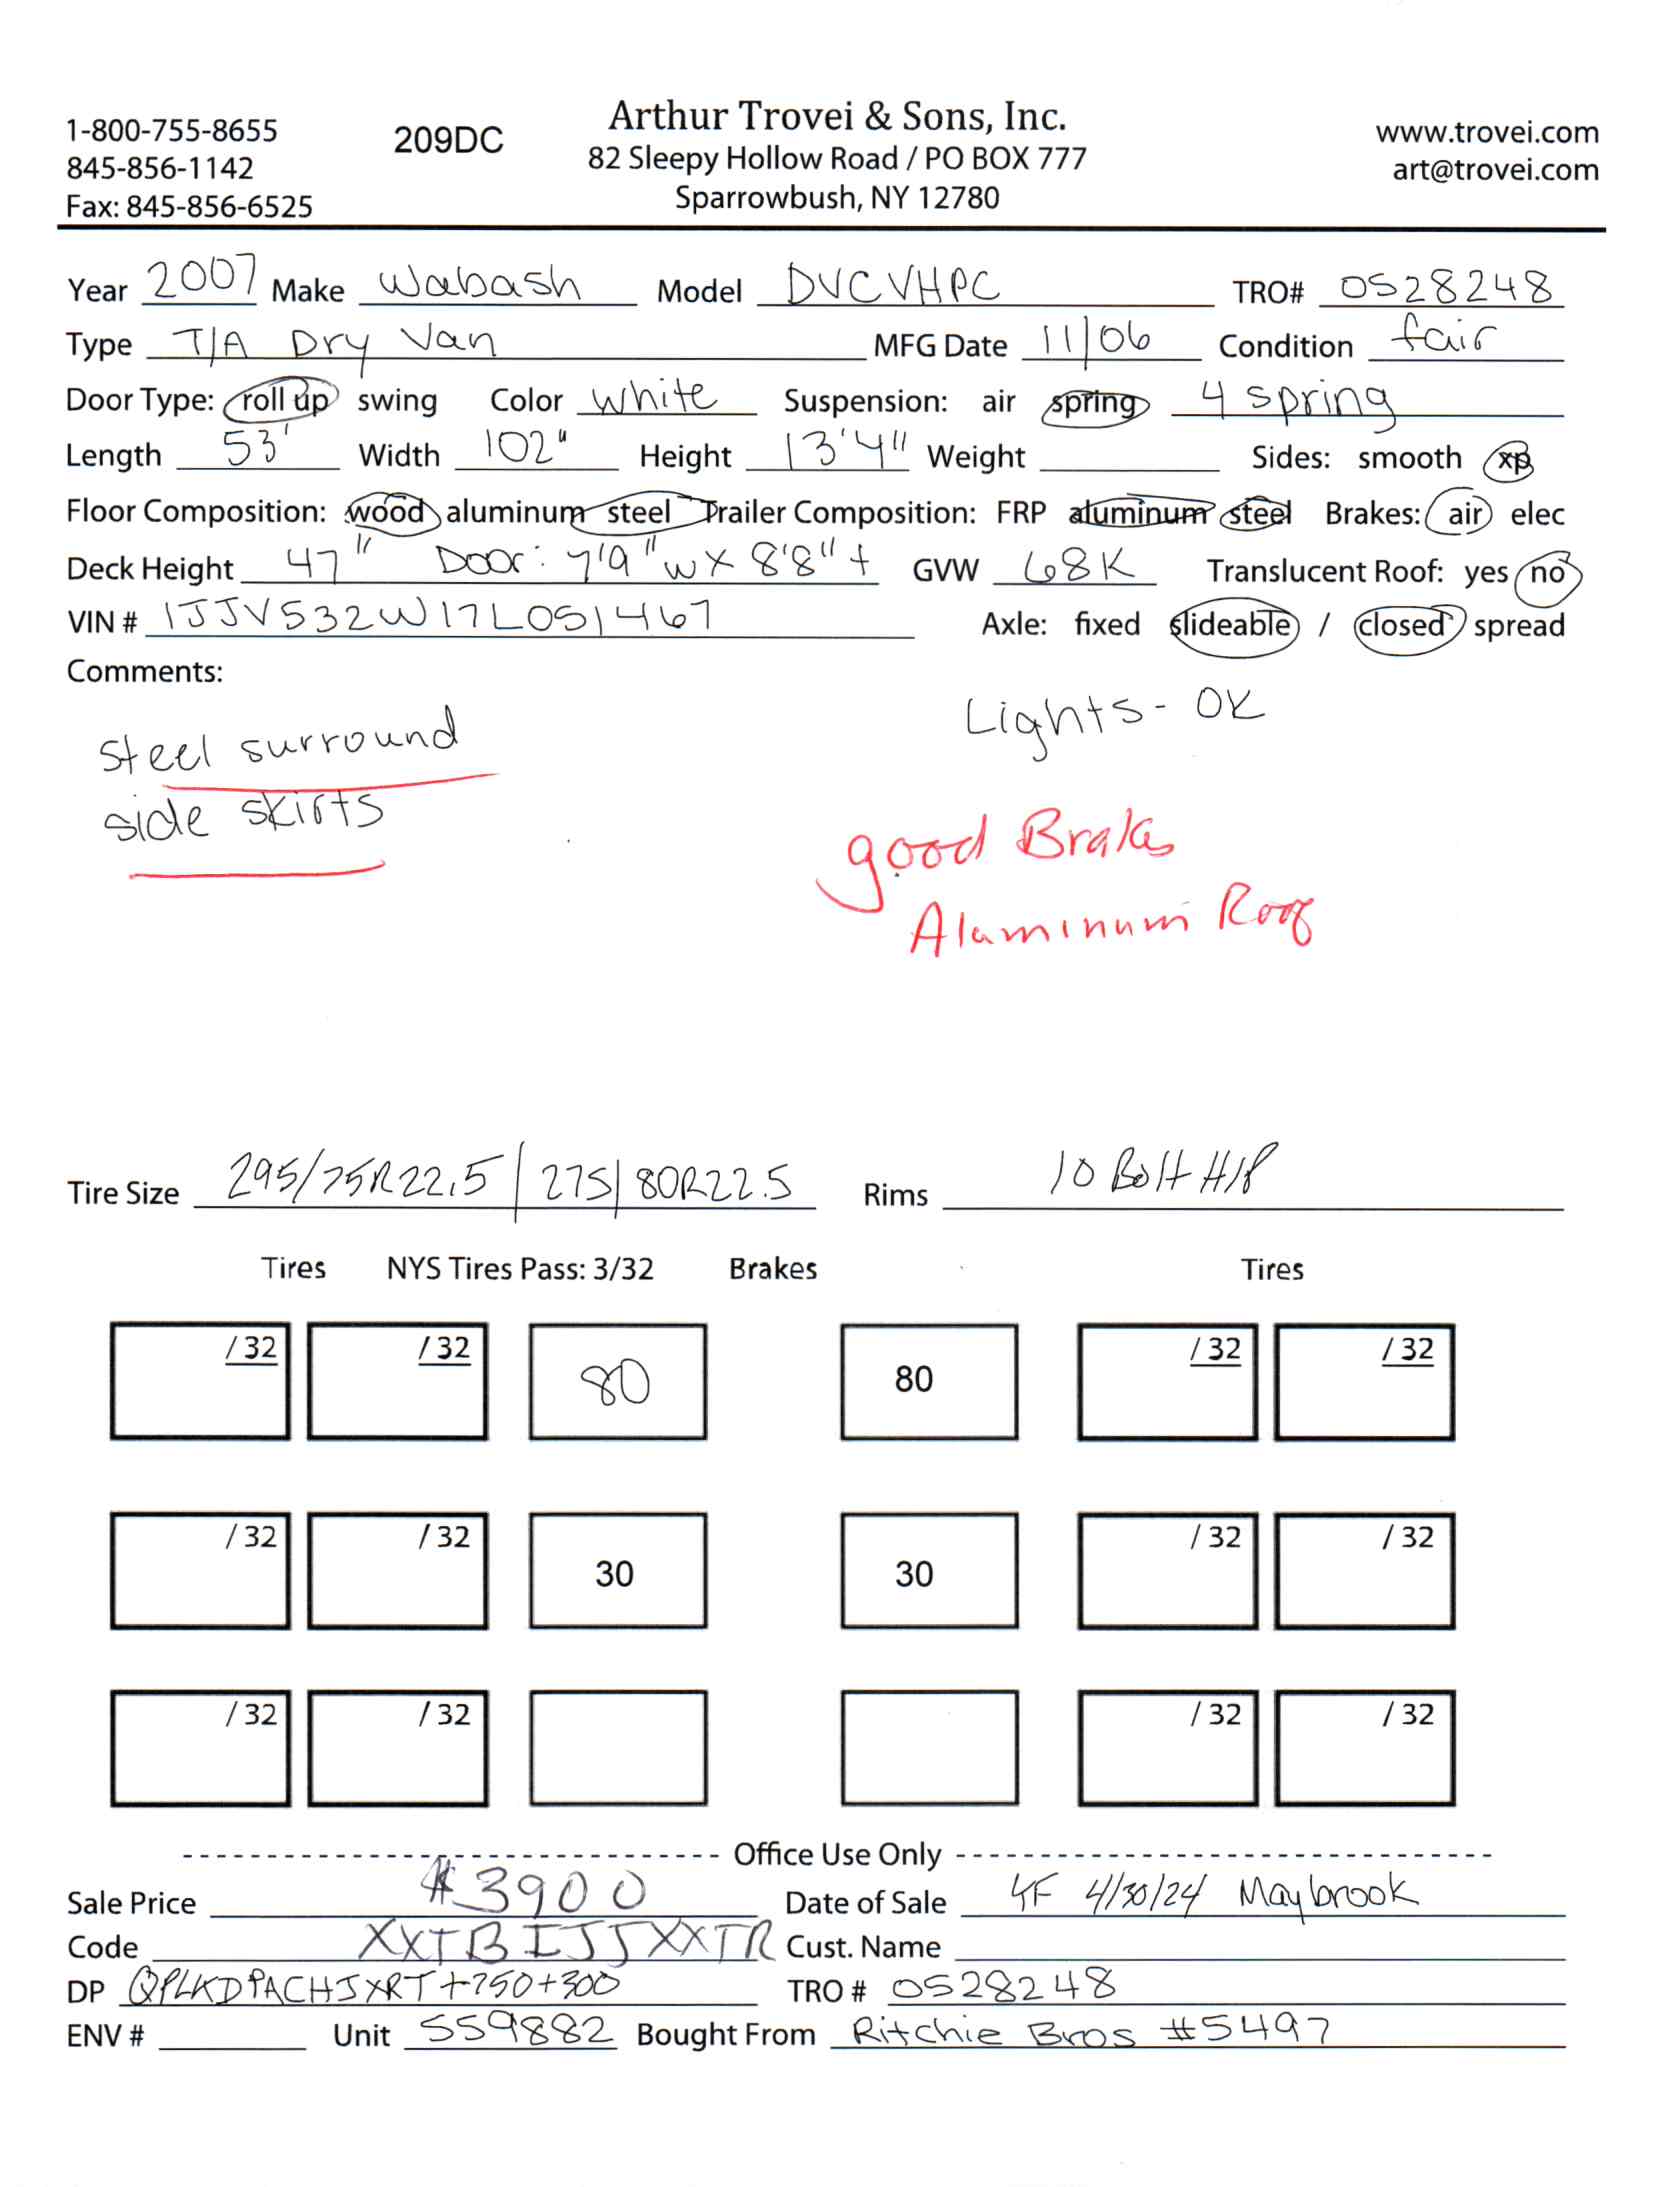 1-800-755-8655
845-856-1142
Fax: 845-856-6525
209DC
Arthur Trovei & Sons, Inc.
82 Sleepy Hollow Road / PO BOX 777
Sparrowbush, NY 12780
www.trovei.com
art@trovei.com
Year 2007 Make Wabash Model DVCVHPC TRO# 0528248
Type T/A Dry Van MFG Date 11/06 Condition fair
Door Type: roll up swing Color white Suspension: air spring 4 spring
Length 53' Width 102" Height 13'4" Weight Sides: smooth xp
Floor Composition: wood aluminum steel Trailer Composition: FRP aluminum steel Brakes: air elec
Deck Height 47" Door: 7'9"w x 8'8"t GVW 68K Translucent Roof: yes no
VIN # 1JJV532W17L051467 Axle: fixed slideable / closed spread
Comments:
Lights - OK
steel surround
side skirts
good Brakes
Aluminum Roof
Tire Size 295/75R22.5 | 275/80R22.5 Rims 10 Bolt H/P
Tires NYS Tires Pass: 3/32 Brakes Tires
/ 32 / 32 80 80 / 32 / 32
/ 32 / 32 30 30 / 32 / 32
/ 32 / 32 / 32 / 32
Office Use Only
Sale Price $3900 Date of Sale 4/30/24 Maybrook
Code XXTBIJJXXTR Cust. Name
DP QPLKDPACHJXRT+750+300 TRO # 0528248
ENV # Unit 559882 Bought From Ritchie Bros #5497